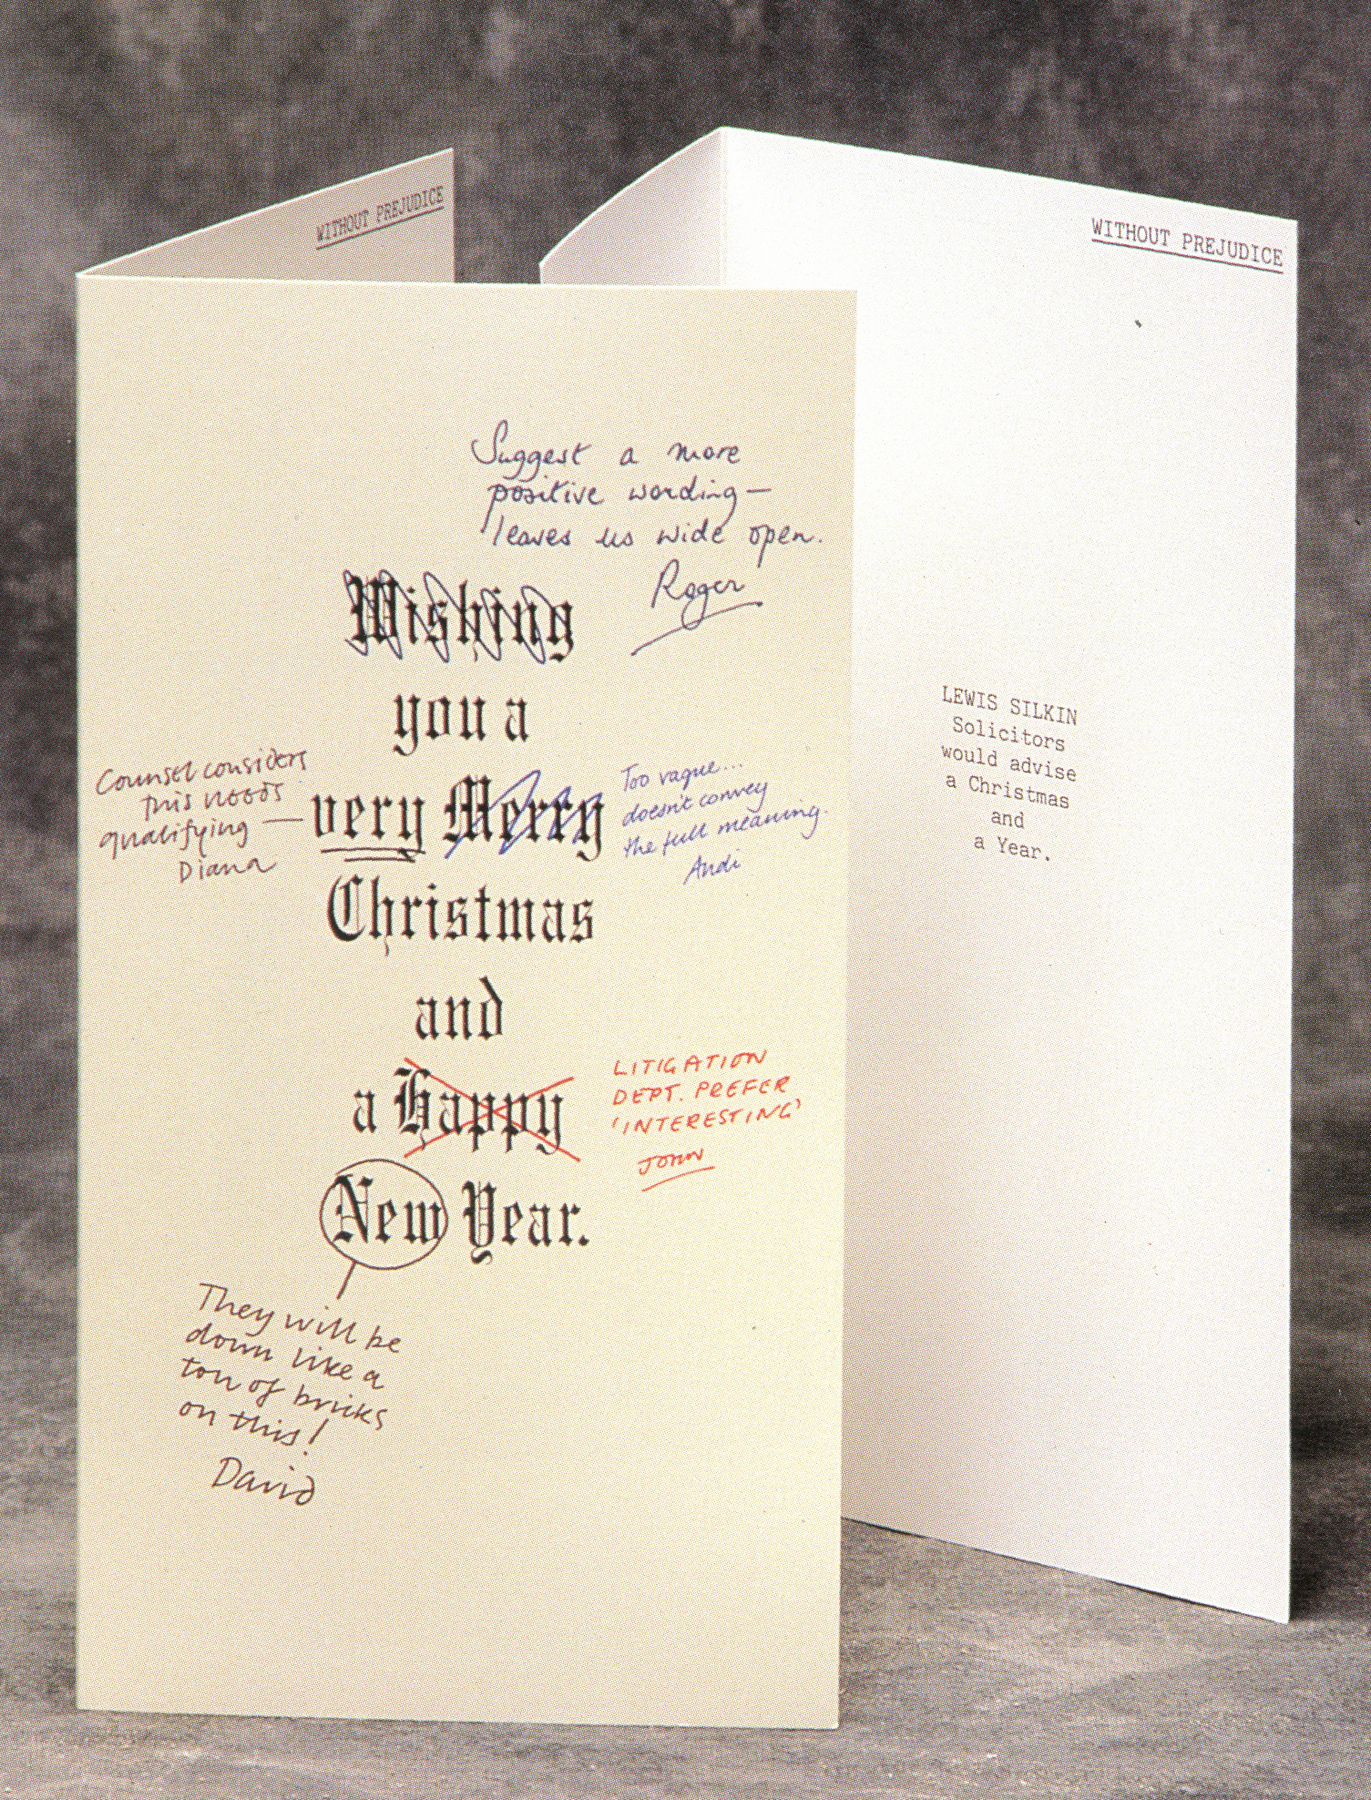 WITHOUT PREJUDICE
Suggest a more
positive wording—
leaves us wide open.
Roger
Wishing
you a
very Merry
Christmas
and
a happy
New Year.
Counsel considers
this needs
qualifying —
Diana
Too vague...
doesn't convey
the full meaning.
Andi
LITIGATION
DEPT. PREFER
'INTERESTING'
JOHN
They will be
down like a
ton of bricks
on this!
David
WITHOUT PREJUDICE
LEWIS SILKIN
Solicitors
would advise
a Christmas
and
a Year.